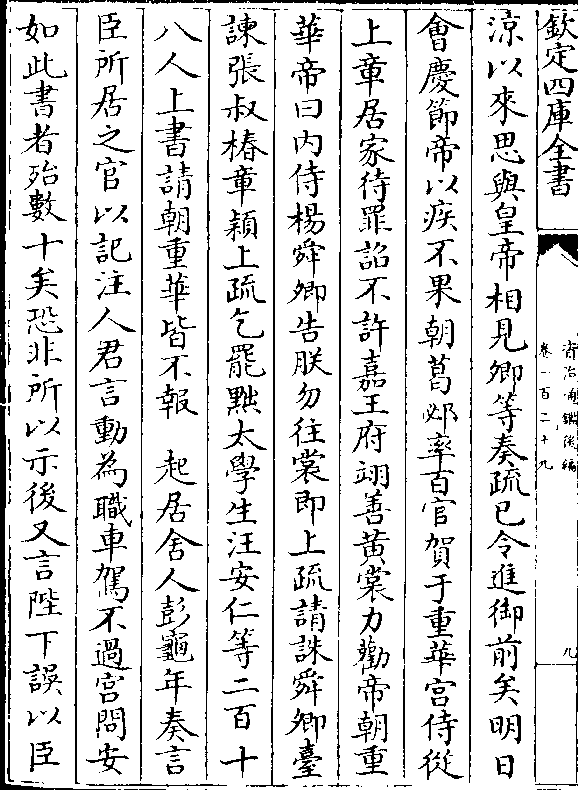 欽定四庫全書
資治通鑑後編
卷一百二十九
九
涼以來思與皇帝相見卿等奏疏已令進御前矣明日
會慶節帝以疾不果朝葛邲率百官賀于重華宮侍從
上章居家待罪詔不許嘉王府翊善黄裳力勸帝朝重
華帝曰内侍楊舜卿告朕勿往裳即上疏請誅舜卿臺
諫張叔椿章穎上疏乞罷黜太學生汪安仁等二百十
八人上書請朝重華皆不報　起居舍人彭龜年奏言
臣所居之官以記注人君言動為職車駕不過宮問安
如此書者殆數十矣恐非所以示後又言陛下誤以臣